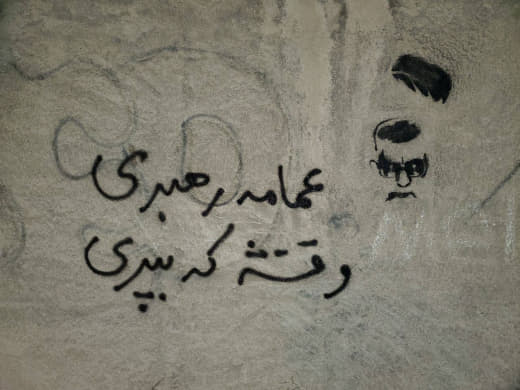 عمامه رهبری
وقتشه که بپری